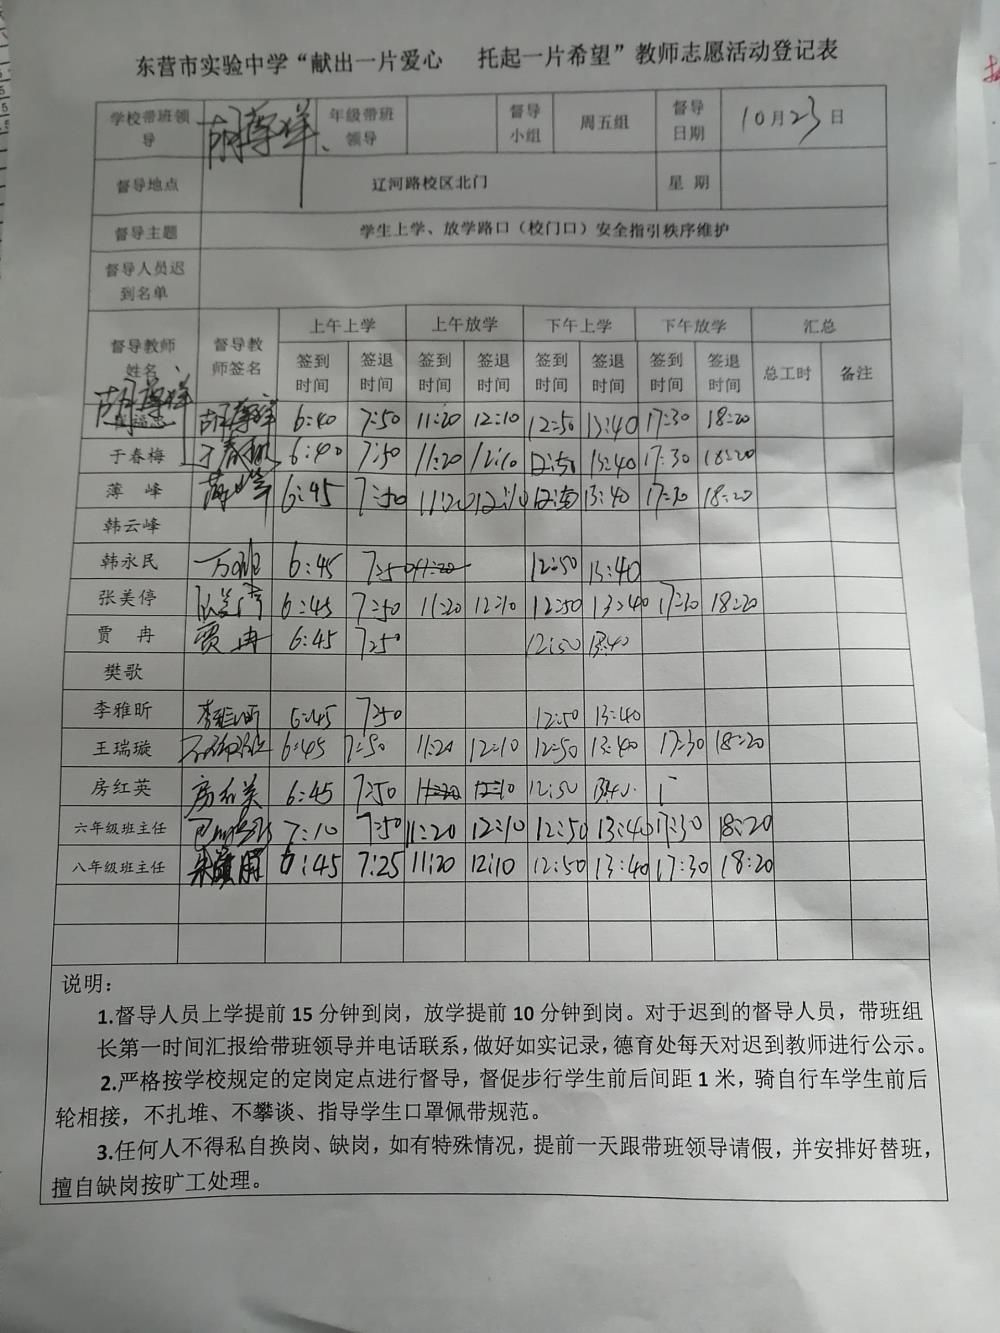 东营市实验中学“献出一片爱心 托起一片希望”教师志愿活动登记表
学校带班领导 胡尊祥 年级带班领导 督导小组 周五组 督导日期 10月23日
督导地点 辽河路校区北门 星 期
督导主题 学生上学、放学路口（校门口）安全指引秩序维护
督导人员迟到名单
督导教师姓名 督导教师签名 上午上学 上午放学 下午上学 下午放学 汇总
签到时间 签退时间 签到时间 签退时间 签到时间 签退时间 签到时间 签退时间 总工时 备注
胡尊祥 胡尊祥 6:40 7:50 11:20 12:10 12:50 13:40 17:30 18:20
于春梅 于春梅 6:40 7:50 11:20 12:10 12:50 13:40 17:30 18:20
薄 峰 薄峰 6:45 7:50 11:20 12:10 12:50 13:40 17:30 18:20
韩云峰
韩永民 6:45 7:50 11:20 12:50 13:40
张美停 张美停 6:45 7:50 11:20 12:10 12:50 13:40 17:30 18:20
贾 冉 贾冉 6:45 7:50 12:50 13:40
樊歌
李雅昕 李雅昕 6:45 7:50 12:50 13:40
王瑞璇 6:45 7:50 11:20 12:10 12:50 13:40 17:30 18:20
房红英 房红英 6:45 7:50 11:20 12:10 12:50 13:40
六年级班主任 7:10 7:50 11:20 12:10 12:50 13:40 17:30 18:20
八年级班主任 6:45 7:25 11:20 12:10 12:50 13:40 17:30 18:20
说明：
1.督导人员上学提前 15 分钟到岗，放学提前 10 分钟到岗。对于迟到的督导人员，带班组
长第一时间汇报给带班领导并电话联系，做好如实记录，德育处每天对迟到教师进行公示。
2.严格按学校规定的定岗定点进行督导，督促步行学生前后间距 1 米，骑自行车学生前后
轮相接，不扎堆、不攀谈、指导学生口罩佩带规范。
3.任何人不得私自换岗、缺岗，如有特殊情况，提前一天跟带班领导请假，并安排好替班，
擅自缺岗按旷工处理。